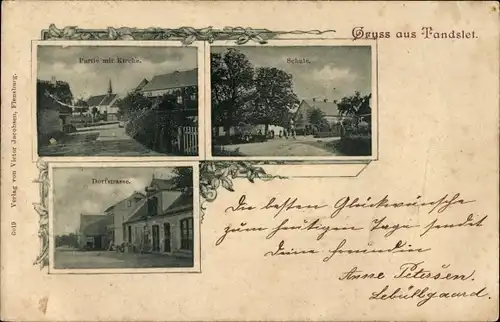 Gruss aus Tandslet.
Partie mit Kirche.
Schule.
Dorfstrasse.
5049 Verlag vom Victor Jacobsen, Flensburg.
Die besten Glückwünsche
zum heutigen Tage sendet
Deine Freundin
Anne Petersen.
Lebøllgaard.